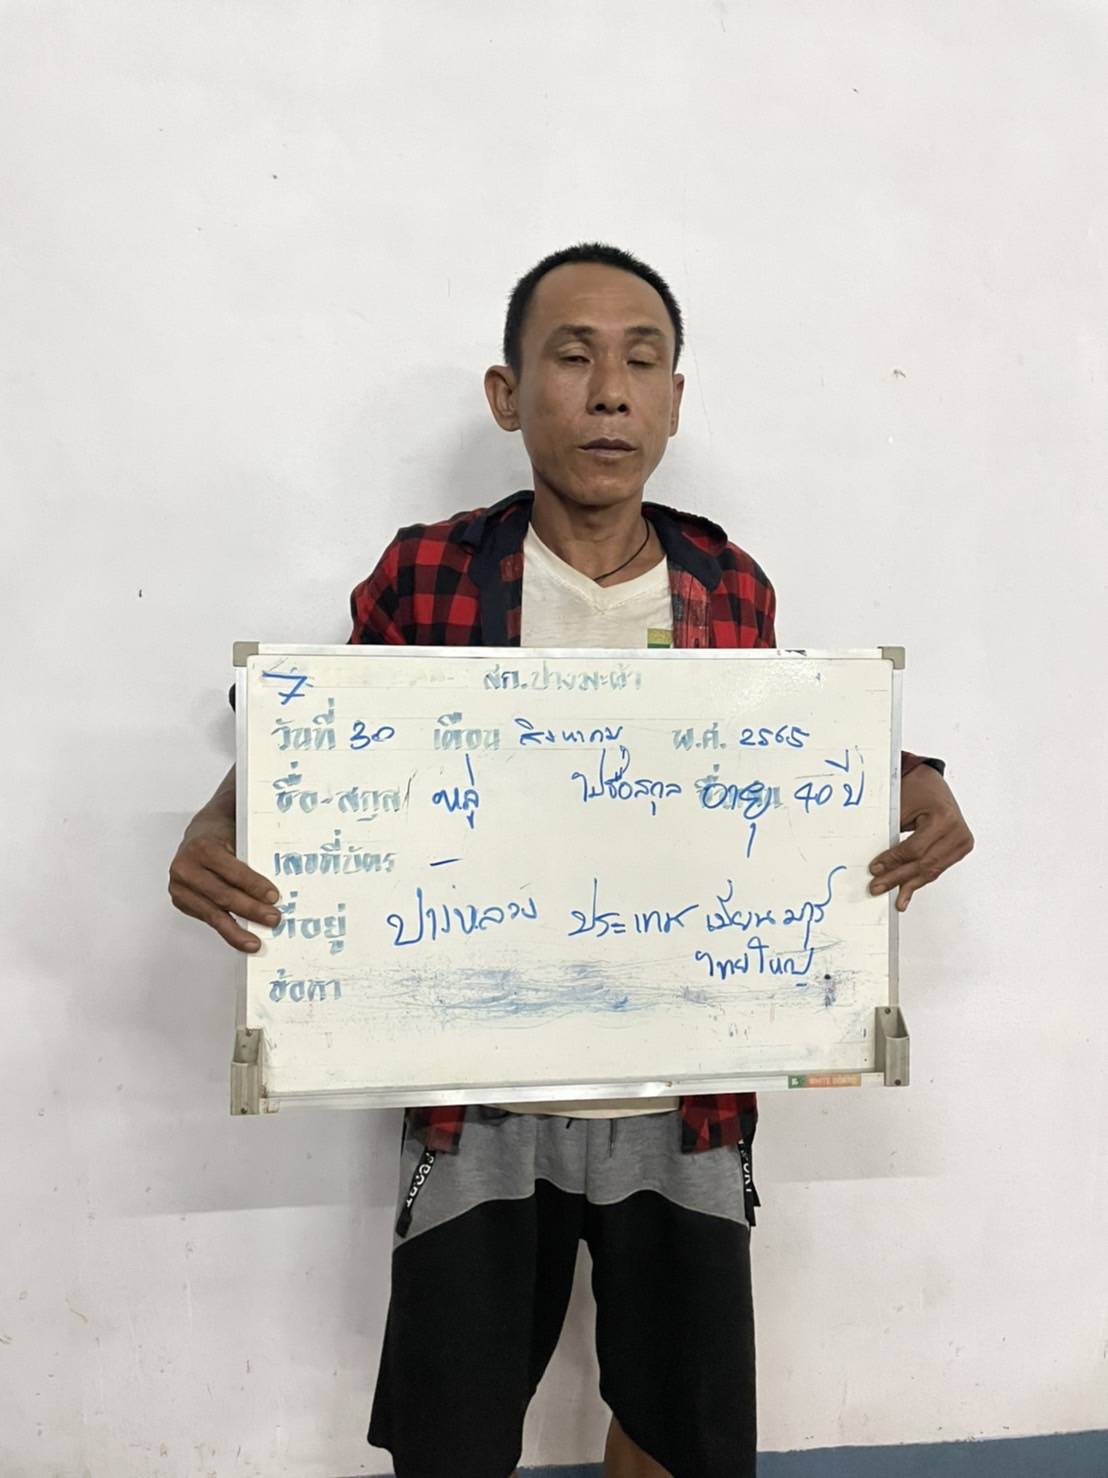 7
สภ.ปางมะผ้า
วันที่ 30 เดือน สิงหาคม พ.ศ. 2565
ชื่อ-สกุล หลู่ ไม่มีชื่อสกุล อายุ 40 ปี
เลขที่บัตร -
ที่อยู่ ปางหลวง ประเทศ เมียนมาร์
ไทยใหญ่
ข้อหา
WHITE BOARD